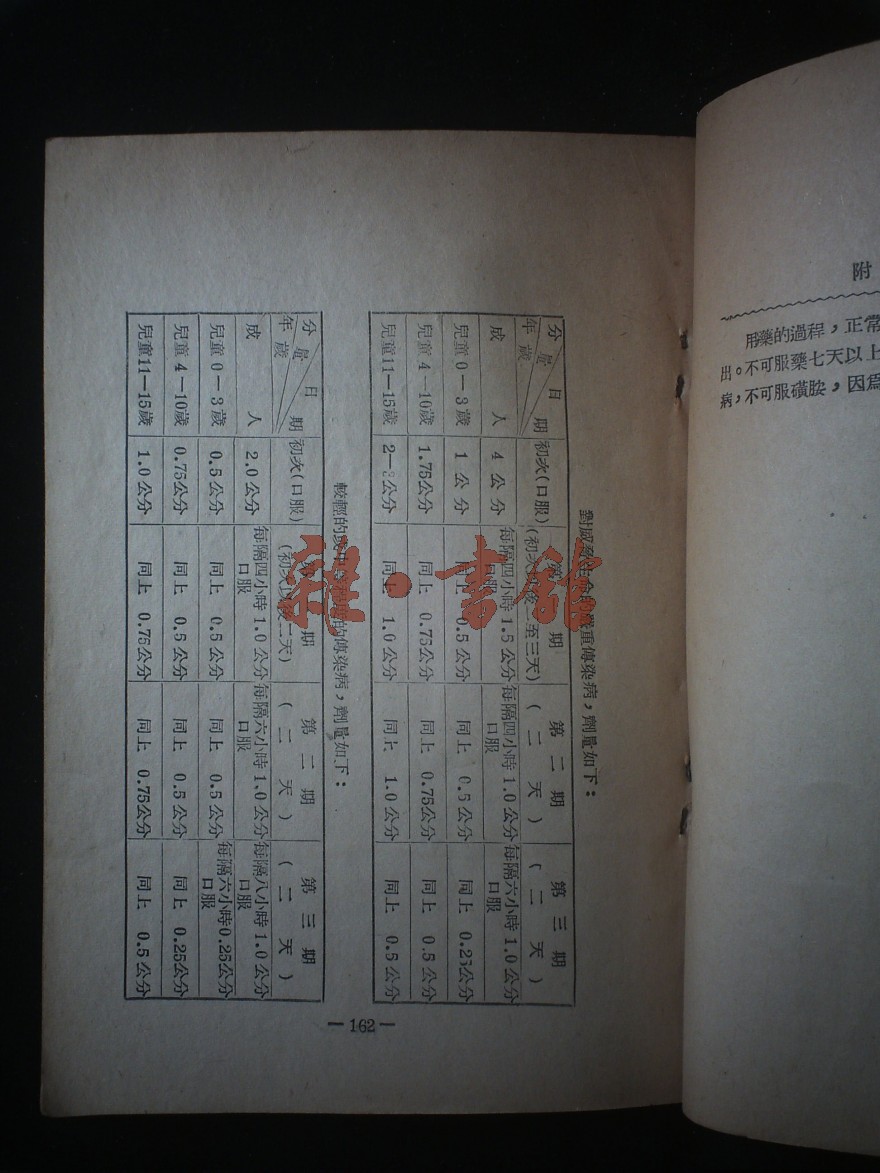 對威脅生命的嚴重傳染病，劑量如下：
分量 日期 年歲 初次(口服) 第 期 (初次以後二至三天) 第二期 (二天) 第三期 (二天)
成人 4公分 每隔四小時1.5公分口服 每隔四小時1.0公分口服 每隔六小時1.0公分口服
兒童0—3歲 1公分 同上 0.5公分 同上 0.5公分 同上 0.25公分
兒童4—10歲 1.75公分 同上 0.75公分 同上 0.75公分 同上 0.5公分
兒童11—15歲 2—3公分 同上 1.0公分 同上 1.0公分 同上 0.5公分
較輕的或中 的傳染病，劑量如下：
分量 日期 年歲 初次(口服) 期 (初次以後二天) 第二期 (二天) 第三期 (二天)
成人 2.0公分 每隔四小時1.0公分口服 每隔六小時1.0公分口服 每隔八小時1.0公分口服
兒童0—3歲 0.5公分 同上 0.5公分 同上 0.5公分 每隔六小時0.25公分口服
兒童4—10歲 0.75公分 同上 0.5公分 同上 0.5公分 同上 0.25公分
兒童11—15歲 1.0公分 同上 0.75公分 同上 0.75公分 同上 0.5公分
—162—
附
用藥的過程，正常
出。不可服藥七天以上
病，不可服磺胺，因爲
雜·書館